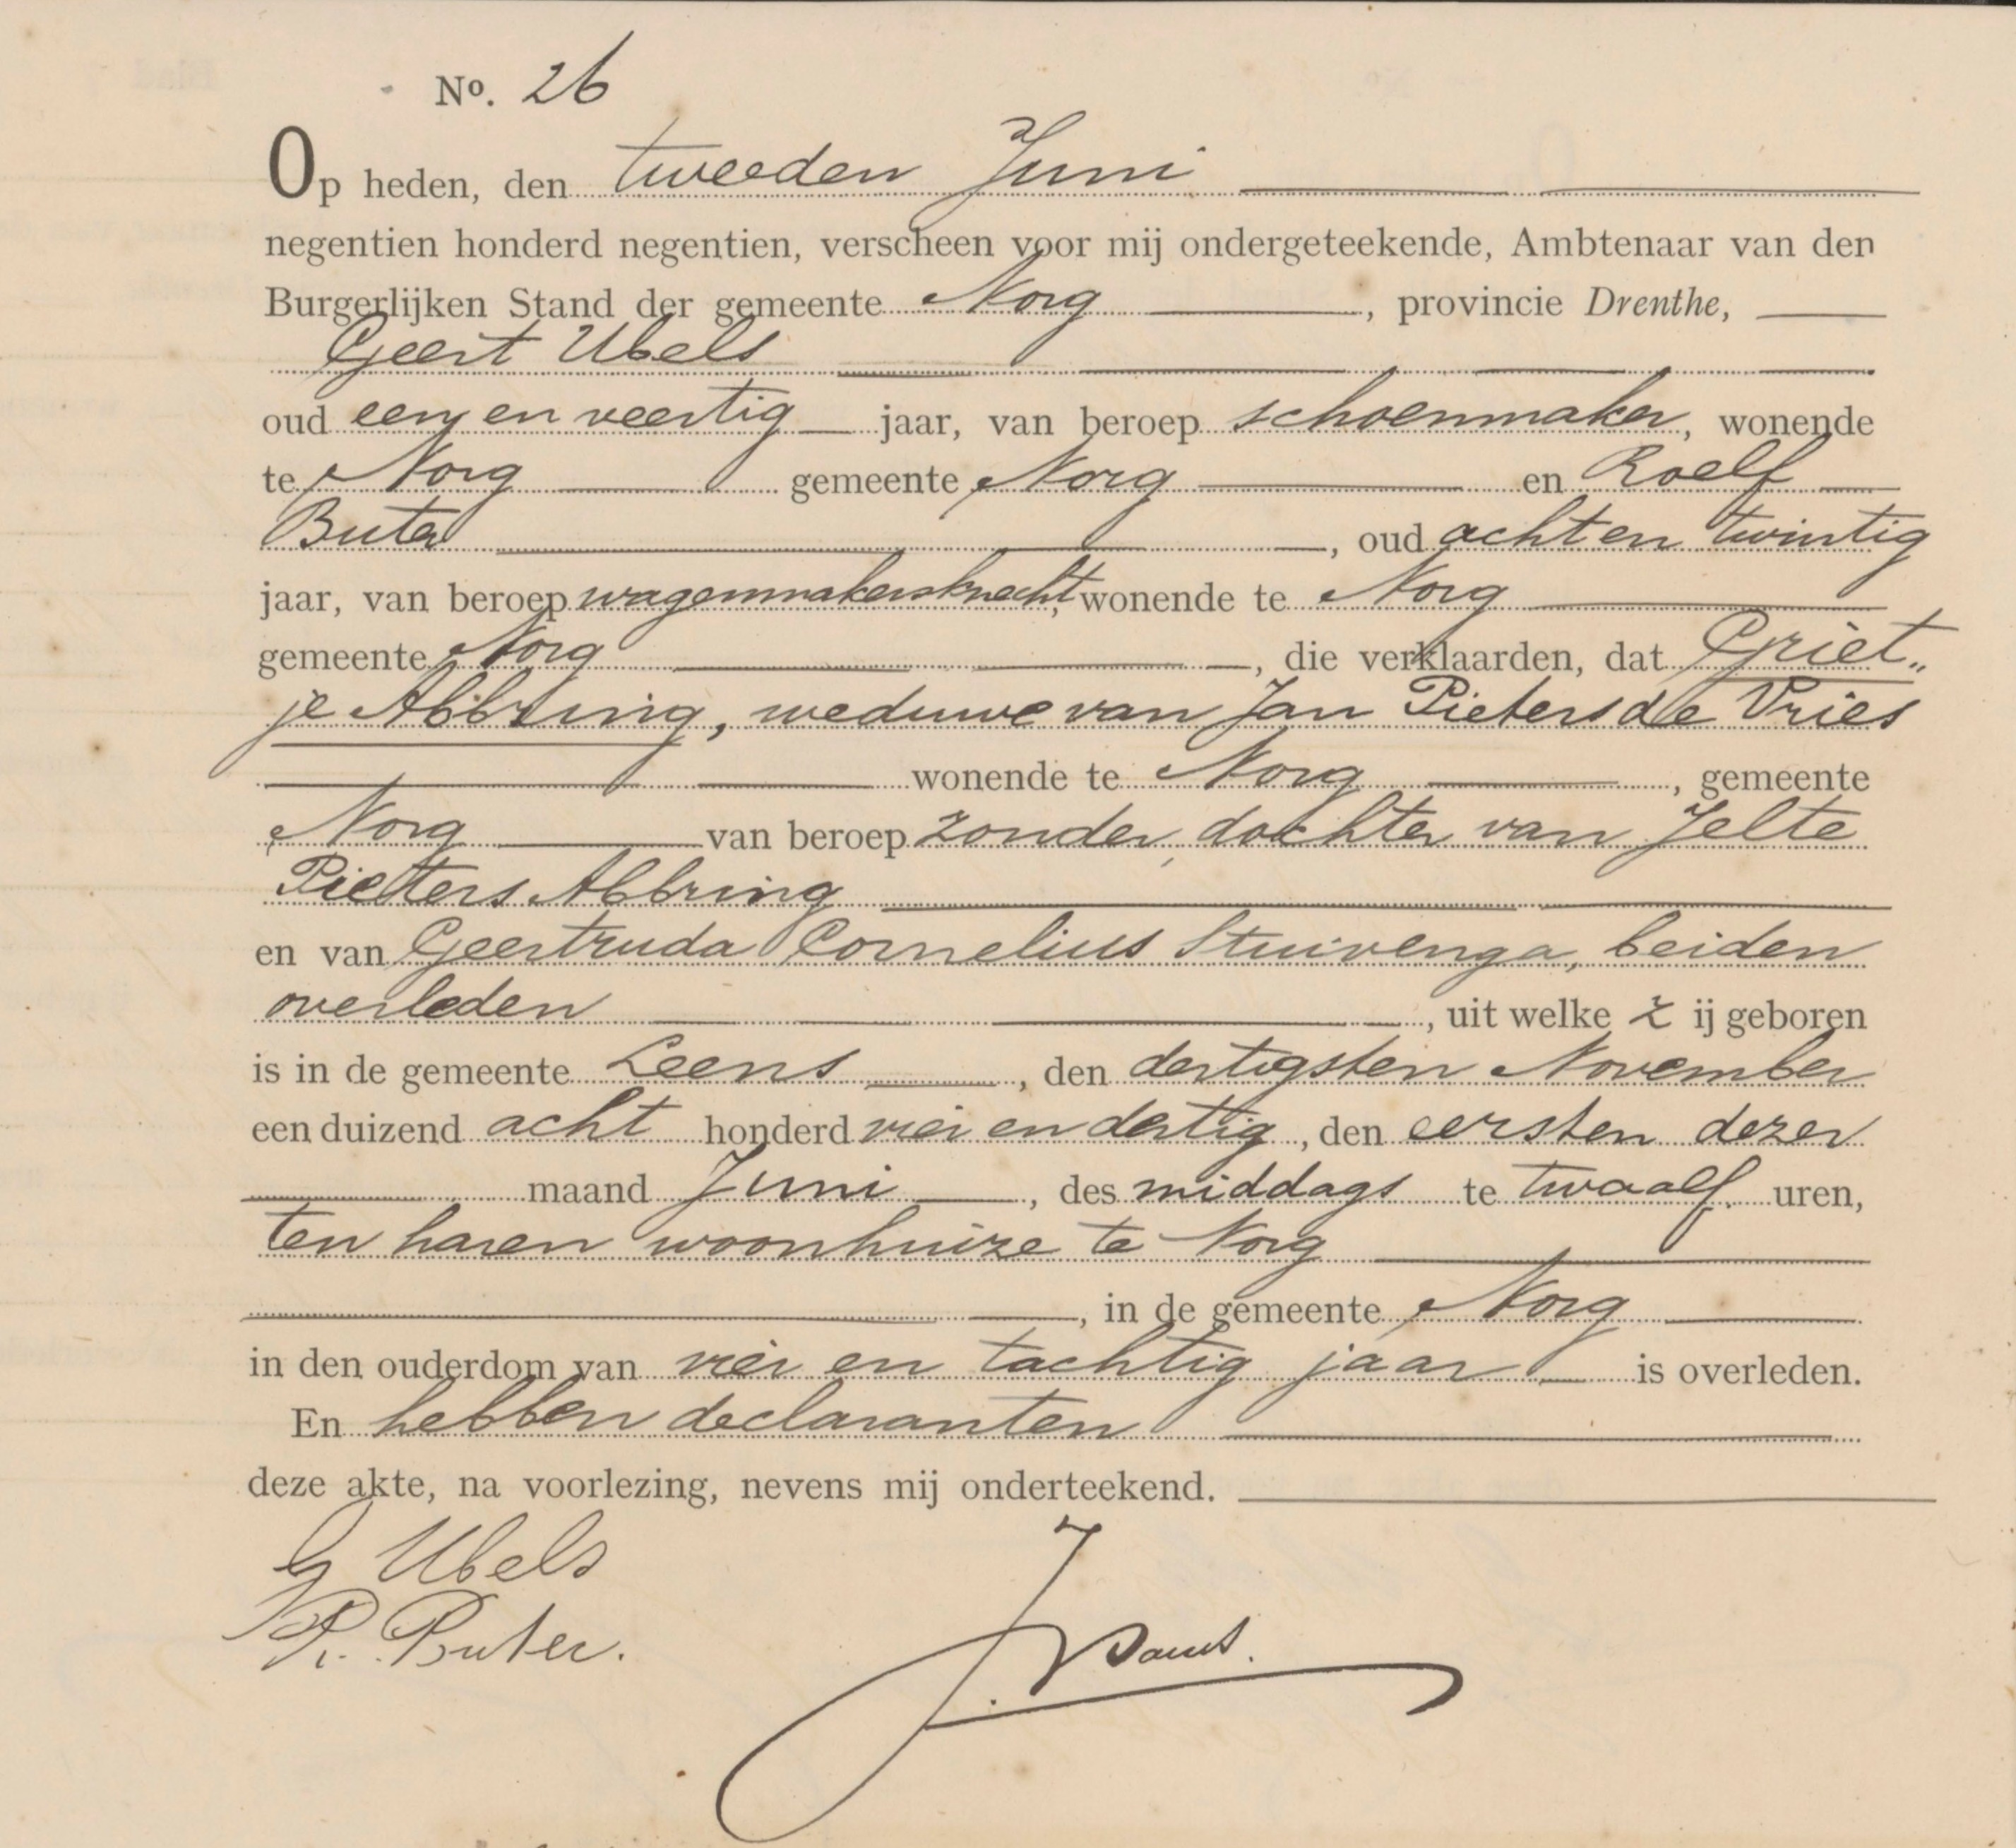 No. 26
Op heden, den tweeden Juni
negentien honderd negentien, verscheen voor mij ondergeteekende, Ambtenaar van den
Burgerlijken Stand der gemeente Norg, provincie Drenthe,
Geert Ubels
oud een en veertig jaar, van beroep schoenmaker, wonende
te Norg gemeente Norg en Roelf
Buter, oud acht en twintig
jaar, van beroep wagenmakersknecht, wonende te Norg
gemeente Norg, die verklaarden, dat Griet„
je Abbring, weduwe van Jan Pieters de Vries
wonende te Norg, gemeente
Norg van beroep zonder, dochter van Jelte
Pieters Abbring
en van Geertruda Cornelius Stuivenga, beiden
overleden, uit welke zij geboren
is in de gemeente Leens, den dertigsten November
een duizend acht honderd vier en dertig, den eersten dezer
maand Juni, des middags te twaalf uren,
ten haren woonhuize te Norg
, in de gemeente Norg
in den ouderdom van vier en tachtig jaar is overleden.
En hebben declaranten
deze akte, na voorlezing, nevens mij onderteekend.
G Ubels
R. Buter.